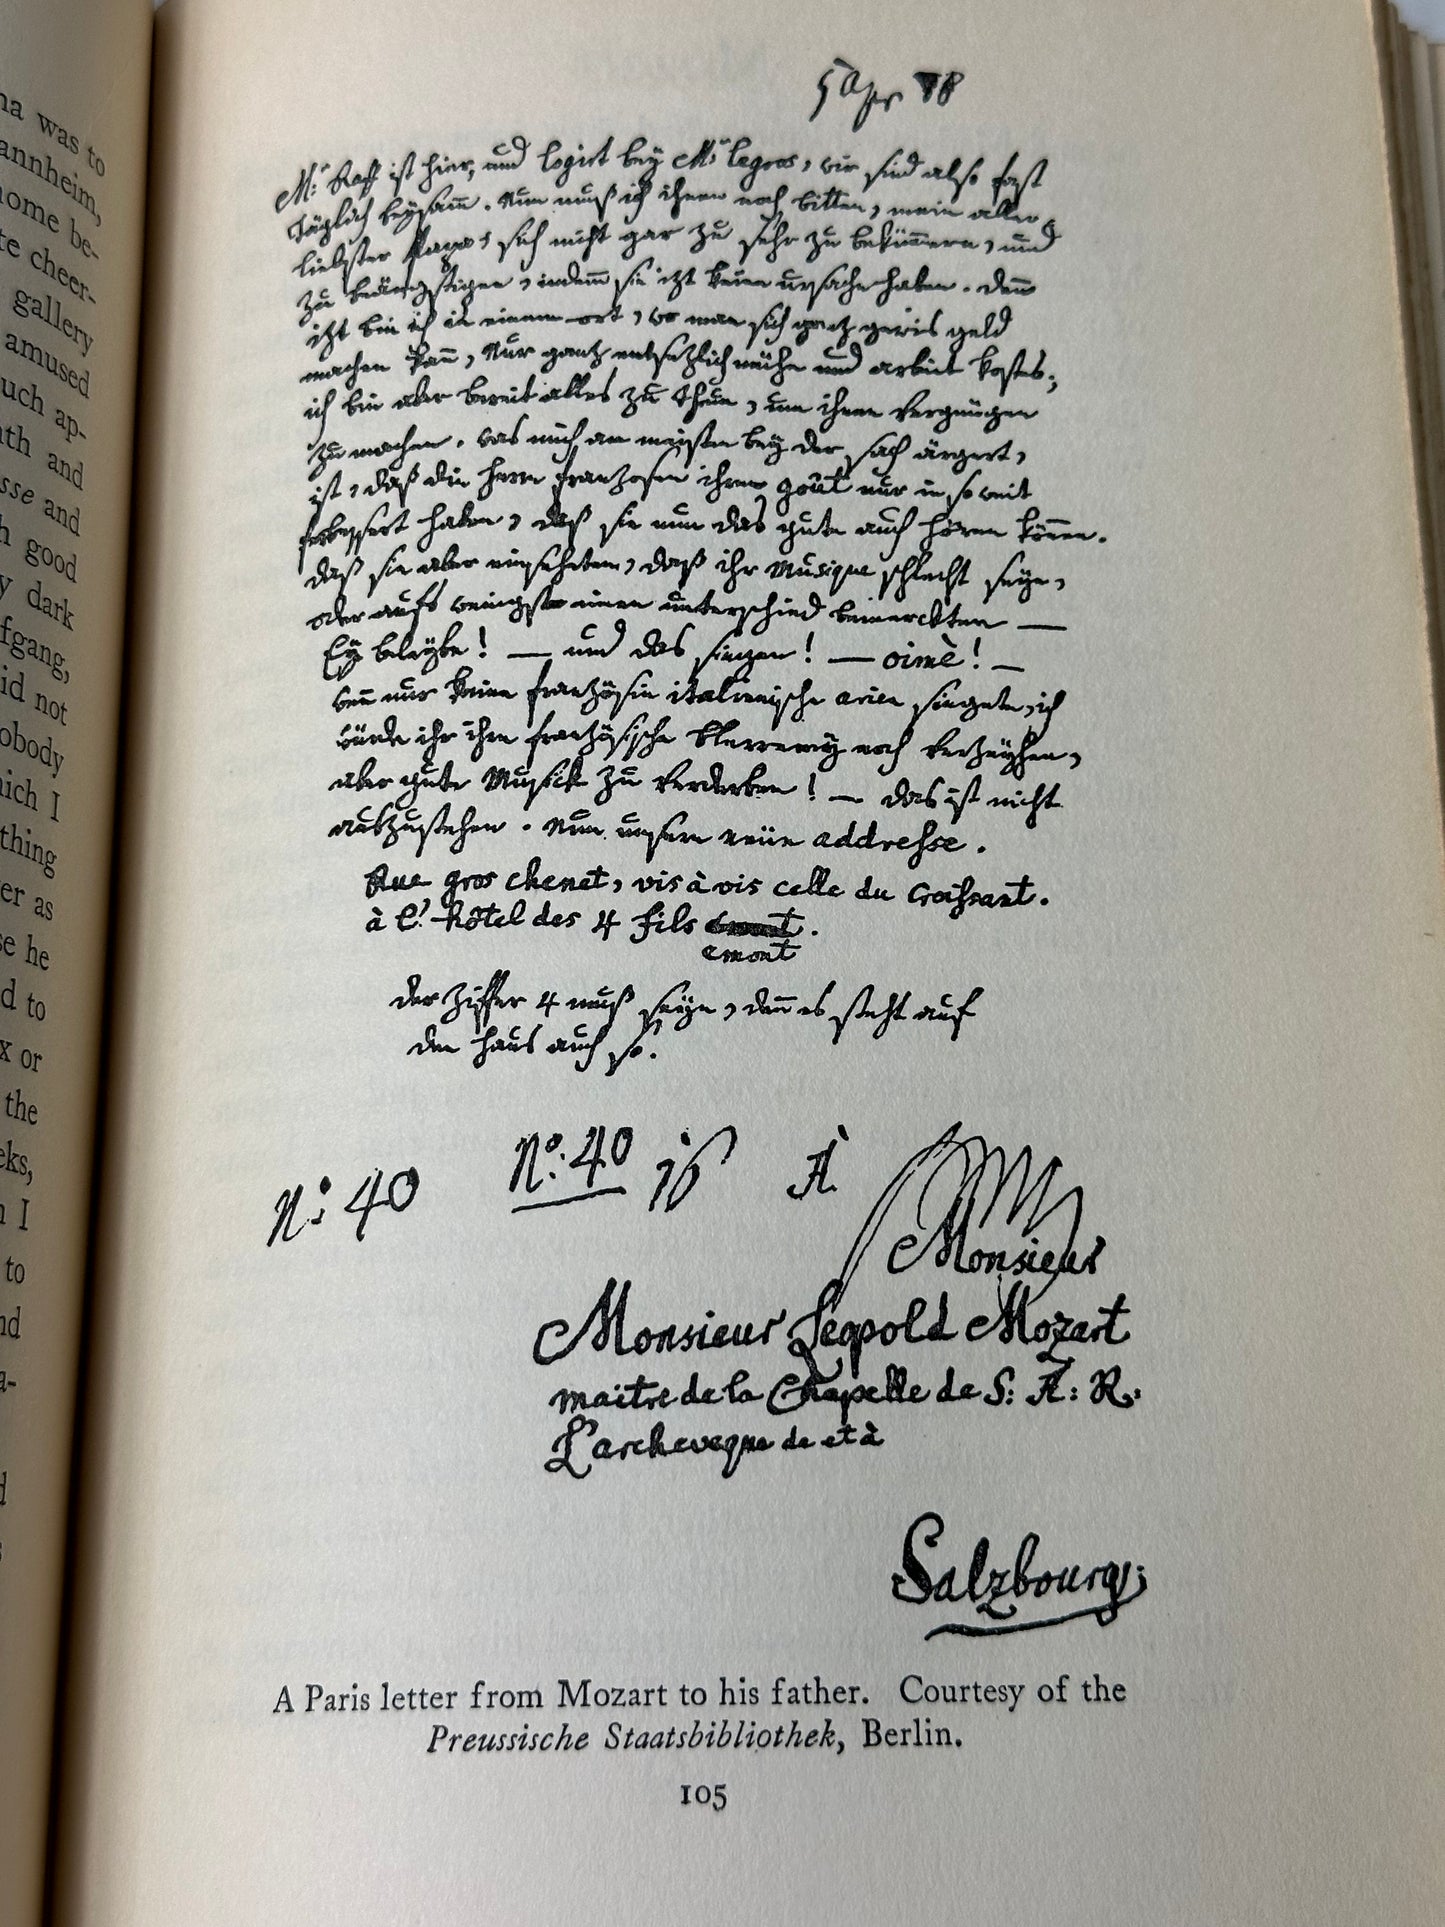 na was to
annheim,
ome be-
te cheer-
gallery
amused
uch ap-
th and
sse and
h good
y dark
fgang,
id not
obody
ich I
thing
er as
se he
d to
x or
the
eks,
n I
to
nd
a-
d
s
5 Apr 78
Mr: Raff ist hier, und logirt bey Mr: legros, wir sind also fast
täglich beysam̅. Nun muß ich ihnen noch bitten, mein aller
liebster Papa, sich nicht gar zu sehr zu bekümmern, und
zu beängstigen, indem̅ sie izt keine ursache haben. den̅
izt bin ich in einem ort, wo man sich ganz gewis geld
machen kan̅, Nur gantz entsezlich mühe und arbeit kostes;
ich bin aber bereit alles zu thun, um ihnen vergnügen
zu machen. was mich am meisten bey der sach ärgert,
ist, daß die Herrn franzosen ihren goût nur in so weit
verbessert haben, daß sie nun das gute auch hören kön̅en.
daß sie aber einseheten, daß ihr Musique schlecht seye,
oder aufs wenigste einen unterschied bemerckten —
Ey beleybe! — und das singen! — oimè! —
wen̅ nur keine französin italienische arien singete, ich
würde ihr ihre französische Plererey noch verzeyhen,
aber gute Musick zu verderben! — das ist nicht
auszustehen. Nun unsere neüe addresse.
Rue gros chenet, vis à vis celle du Croissant.
à l'hôtel des 4 fils emont.
emont
der Ziffer 4 muß seyn, den̅ es steht auf
den Haus auch so.
No: 40
No: 40
À
Monsieur
Monsieur Leopold Mozart
maitre de la Chapelle de S: A: R:
L'archeveque de et à
Salzbourg:
A Paris letter from Mozart to his father. Courtesy of the
Preussische Staatsbibliothek, Berlin.
105